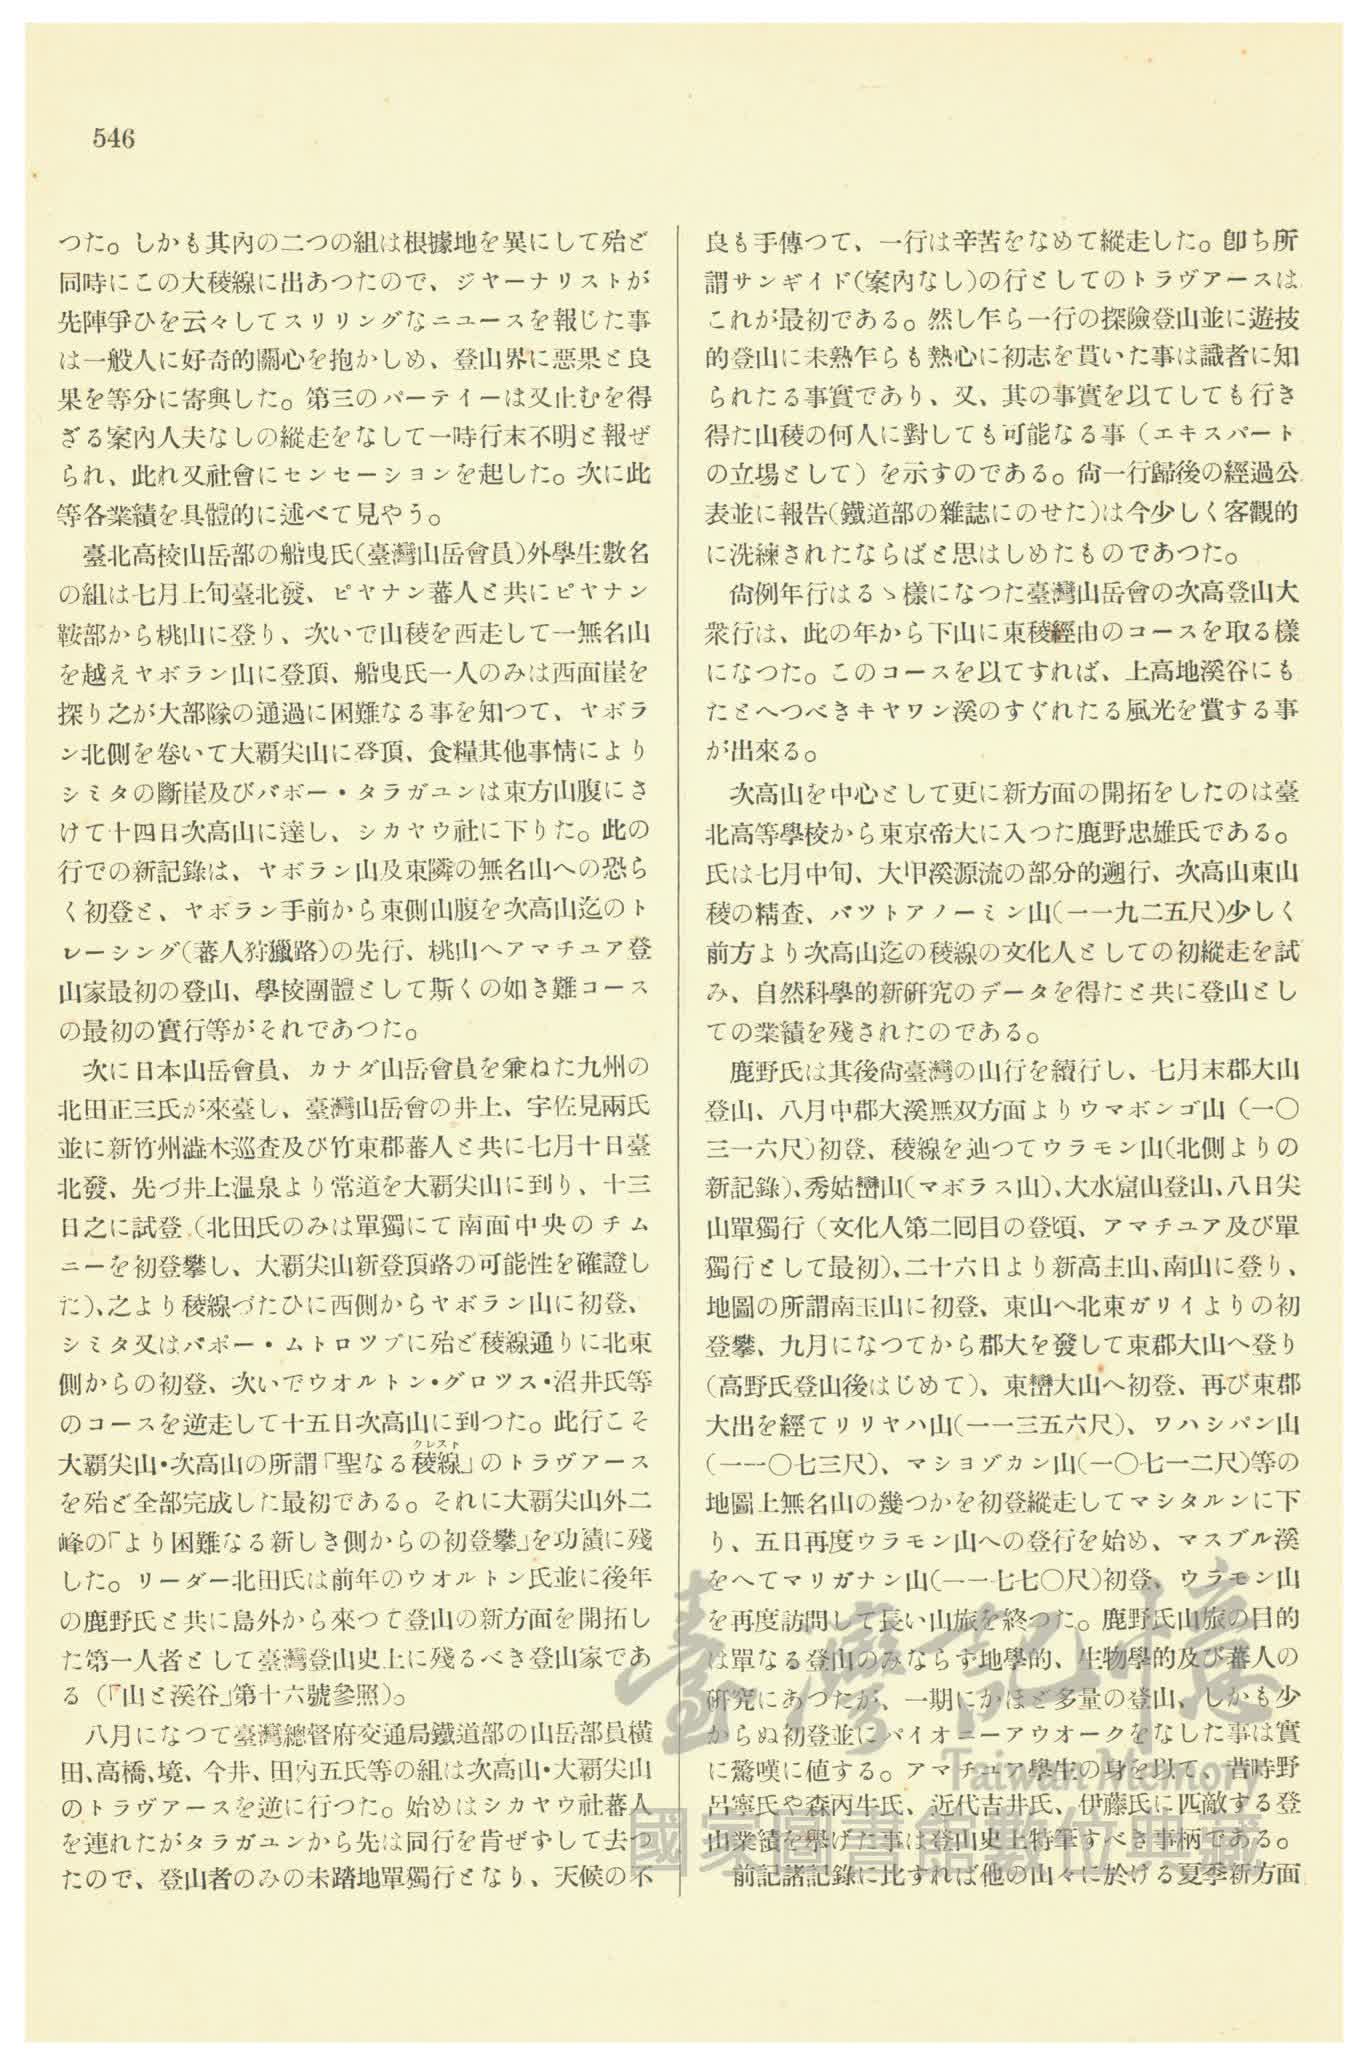 546
つた。しかも其內の二つの組は根據地を異にして殆ど
同時にこの大稜線に出あつたので、ジヤーナリストが
先陣爭ひを云々してスリリングなニユースを報じた事
は一般人に好奇的關心を抱かしめ、登山界に惡果と良
果を等分に寄與した。第三のパーテイーは又止むを得
ざる案內人夫なしの縱走をなして一時行末不明と報ぜ
られ、此れ又社會にセンセーシヨンを起した。次に此
等各業績を具體的に述べて見やう。
臺北高校山岳部の船曳氏(臺灣山岳會員)外學生數名
の組は七月上旬臺北發、ピヤナン蕃人と共にピヤナン
鞍部から桃山に登り、次いで山稜を西走して一無名山
を越えヤボラン山に登頂、船曳氏一人のみは西面崖を
探り之が大部隊の通過に困難なる事を知つて、ヤボラ
ン北側を卷いて大霸尖山に登頂、食糧其他事情により
シミタの斷崖及びバボー・タラガユンは東方山腹にさ
けて十四日次高山に達し、シカヤウ社に下りた。此の
行での新記錄は、ヤボラン山及東隣の無名山への恐ら
く初登と、ヤボラン手前から東側山腹を次高山迄のト
レーシング(蕃人狩獵路)の先行、桃山へアマチユア登
山家最初の登山、學校團體として斯くの如き難コース
の最初の實行等がそれであつた。
次に日本山岳會員、カナダ山岳會員を兼ねた九州の
北田正三氏が來臺し、臺灣山岳會の井上、宇佐見兩氏
並に新竹州澁木巡査及び竹東郡蕃人と共に七月十日臺
北發、先づ井上溫泉より常道を大霸尖山に到り、十三
日之に試登(北田氏のみは單獨にて南面中央のチム
ニーを初登攀し、大霸尖山新登頂路の可能性を確證し
た)、之より稜線づたひに西側からヤボラン山に初登、
シミタ又はバボー・ムトロツプに殆ど稜線通りに北東
側からの初登、次いでウオルトン・グロツス・沼井氏等
のコースを逆走して十五日次高山に到つた。此行こそ
大霸尖山・次高山の所謂「聖なる稜線(クレスト)」のトラヴアース
を殆ど全部完成した最初である。それに大霸尖山外二
峰の「より困難なる新しき側からの初登攀」を功績に殘
した。リーダー北田氏は前年のウオルトン氏並に後年
の鹿野氏と共に島外から來つて登山の新方面を開拓し
た第一人者として臺灣登山史上に殘るべき登山家であ
る(「山と溪谷」第十六號參照)。
八月になつて臺灣總督府交通局鐵道部の山岳部員橫
田、高橋、境、今井、田內五氏等の組は次高山・大霸尖山
のトラヴアースを逆に行つた。始めはシカヤウ社蕃人
を連れたがタラガユンから先は同行を肯ぜずして去つ
たので、登山者のみの未踏地單獨行となり、天候の不
良も手傳つて、一行は辛苦をなめて縱走した。卽ち所
謂サンギイド(案內なし)の行としてのトラヴアースは
これが最初である。然し乍ら一行の探險登山並に遊技
的登山に未熟乍らも熱心に初志を貫いた事は識者に知
られたる事實であり、又、其の事實を以てしても行き
得た山稜の何人に對しても可能なる事(エキスパート
の立場として)を示すのである。尙一行歸後の經過公
表並に報告(鐵道部の雜誌にのせた)は今少しく客觀的
に洗練されたならばと思はしめたものであつた。
尙例年行はるゝ樣になつた臺灣山岳會の次高登山大
衆行は、此の年から下山に東稜經由のコースを取る樣
になつた。このコースを以てすれば、上高地溪谷にも
たとへつべきキヤワン溪のすぐれたる風光を賞する事
が出來る。
次高山を中心として更に新方面の開拓をしたのは臺
北高等學校から東京帝大に入つた鹿野忠雄氏である。
氏は七月中旬、大甲溪源流の部分的遡行、次高山東山
稜の精査、バツトアノーミン山(一一九二五尺)少しく
前方より次高山迄の稜線の文化人としての初縱走を試
み、自然科學的新硏究のデータを得たと共に登山とし
ての業績を殘されたのである。
鹿野氏は其後尙臺灣の山行を續行し、七月末郡大山
登山、八月中郡大溪無双方面よりウマボンゴ山(一〇
三一六尺)初登、稜線を辿つてウラモン山(北側よりの
新記錄)、秀姑巒山(マボラス山)、大水窟山登山、八日尖
山單獨行(文化人第二囘目の登頃、アマチユア及び單
獨行として最初)、二十六日より新高主山、南山に登り、
地圖の所謂南玉山に初登、東山へ北東ガリイよりの初
登攀、九月になつてから郡大を發して東郡大山へ登り
(高野氏登山後はじめて)、東巒大山へ初登、再び東郡
大出を經てリリヤハ山(一一三五六尺)、ワハシバン山
(一一〇七三尺)、マシヨゾカン山(一〇七一二尺)等の
地圖上無名山の幾つかを初登縱走してマシタルンに下
り、五日再度ウラモン山への登行を始め、マスブル溪
をへてマリガナン山(一一七七〇尺)初登、ウラモン山
を再度訪問して長い山旅を終つた。鹿野氏山旅の目的
は單なる登山のみならず地學的、生物學的及び蕃人の
硏究にあつたが、一期にかほど多量の登山、しかも少
からぬ初登並にパイオニーアウオークをなした事は實
に驚嘆に値する。アマチユア學生の身を以て、昔時野
呂寧氏や森丙牛氏、近代吉井氏、伊藤氏に匹敵する登
山業績を擧げた事は登山史上特筆すべき事柄である。
前記諸記錄に比すれば他の山々に於ける夏季新方面
臺灣記憶
Taiwan Memory
國家圖書館數位典藏